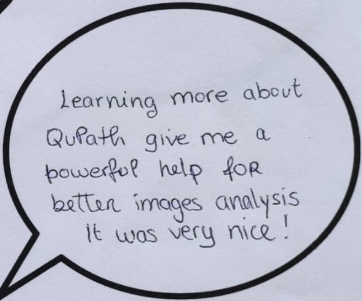 Learning more about
QuPath give me a
powerful help for
better images analysis
It was very nice!